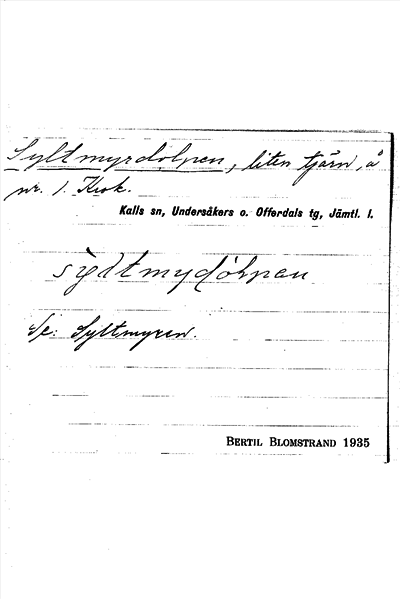 Syltmyrdolpen, liten tjärn, å
nr. 1. Krok.
Kalls sn, Undersåkers o. Offerdals tg, Jämtl. l.
Se: Syltmyren.
BERTIL BLOMSTRAND 1935